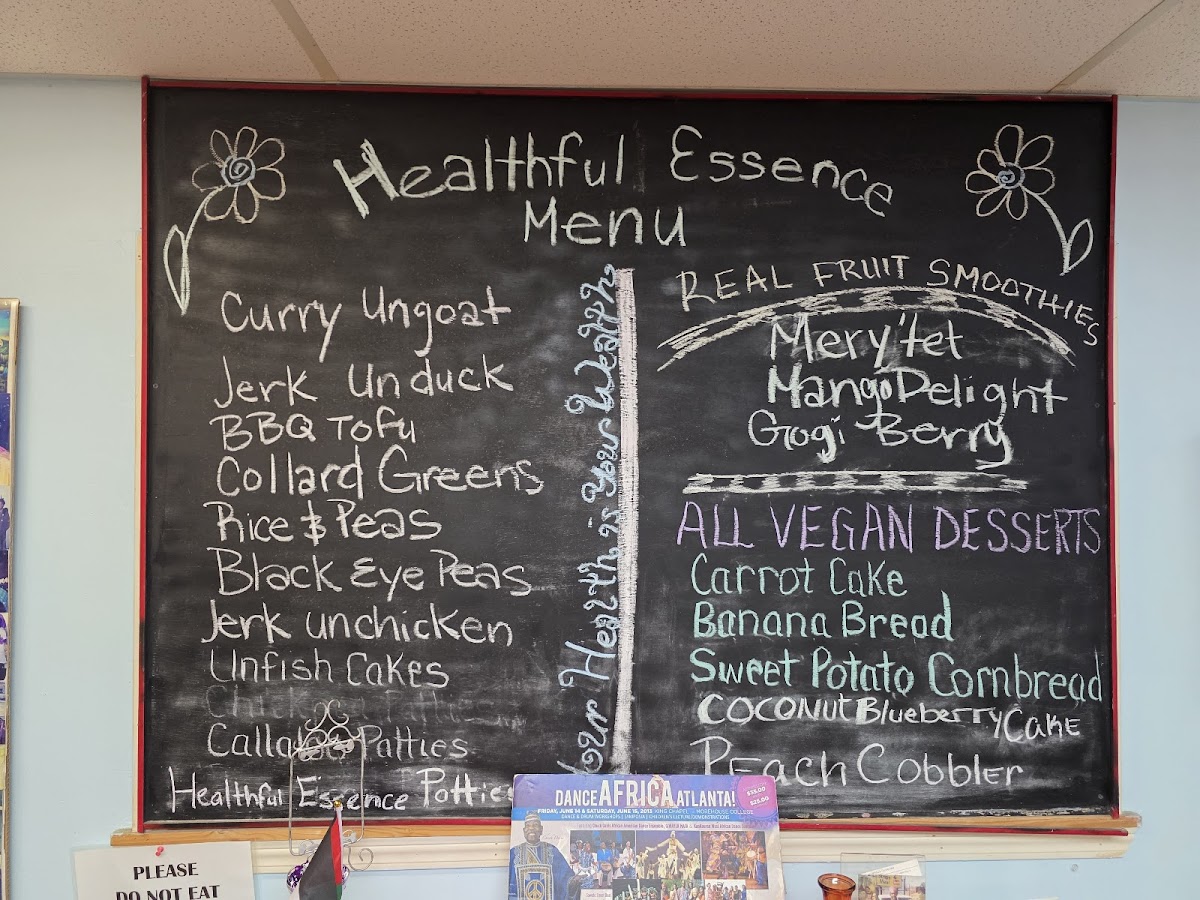 Healthful Essence
Menu
Curry Ungoat
Jerk Unduck
BBQ Tofu
Collard Greens
Rice & Peas
Black Eye Peas
Jerk unchicken
Unfish Cakes
Patties
Healthful Essence Patties
Your Health is Your Wealth
REAL FRUIT SMOOTHIES
Mery'tet
Mango Delight
Gogi Berry
ALL VEGAN DESSERTS
Carrot Cake
Banana Bread
Sweet Potato Cornbread
COCONUT Blueberry Cake
Peach Cobbler
PLEASE
DO NOT EAT
DANCE AFRICA ATLANTA!
FRIDAY, JUNE 14 & SATURDAY, JUNE 15, 2013 KING CHAPEL - MOREHOUSE COLLEGE
$25.00